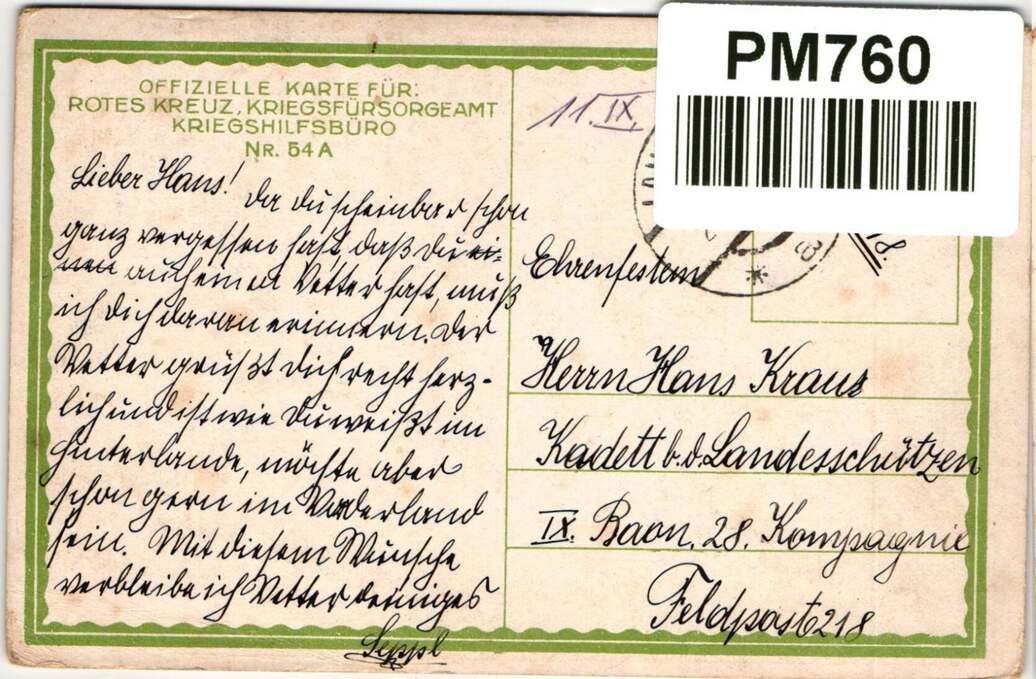 PM760
OFFIZIELLE KARTE FÜR:
ROTES KREUZ, KRIEGSFÜRSORGEAMT
KRIEGSHILFSBÜRO
NR. 54A
Lieber Hans!
Da du scheinbar schon
ganz vergessen hast, daß du ei-
nen auch einen Vetter hast, muß
ich dich daran erinnern. Der
Vetter grüßt dich recht herz-
lich und ist wie du weißt im
Hinterlande, möchte aber
schon gern im Vorderland
sein. Mit diesem Wunsche
verbleibe ich Vetter deiniges
Seppl
11. IX
18.
8
Ehrenfestem
Herrn Hans Kraus
Kadett b. d. Landesschützen
IX. Baon. 28. Kompagnie
Feldpost 218